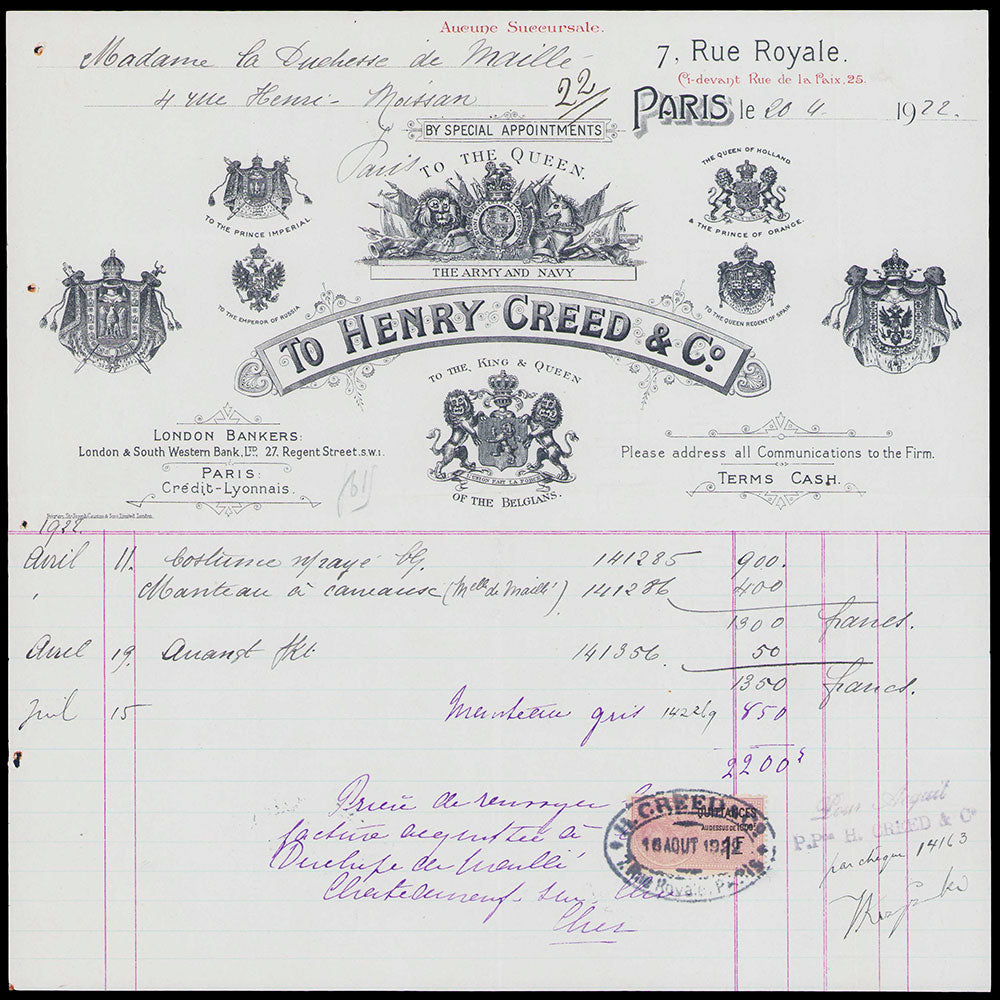 Aucune Succursale.
Madame la Duchesse de Maillé
7, Rue Royale.
Ci-devant Rue de la Paix, 25.
4 rue Henri-Moissan
22/
PARIS le 20 4. 1922.
Paris
BY SPECIAL APPOINTMENTS
TO THE QUEEN.
THE ARMY AND NAVY
TO THE PRINCE IMPERIAL.
THE QUEEN OF HOLLAND
& THE PRINCE OF ORANGE.
TO THE EMPEROR OF RUSSIA
TO THE QUEEN REGENT OF SPAIN
TO HENRY CREED & Co.
TO THE KING & QUEEN
L'UNION FAIT LA FORCE
OF THE BELGIANS.
LONDON BANKERS:
London & South Western Bank, LTD. 27, Regent Street, S.W.1.
PARIS:
Crédit-Lyonnais.
Please address all Communications to the Firm.
TERMS CASH.
1922.
Avril 11. Costume 141285 900.
" Manteau à (Melle de Maillé) 141286 400
1300 francs.
Avril 19. 141356. 50
1350 francs.
Juil 15 Manteau gris 142269 850
2200
Prière de renvoyer la
facture acquittée à
Duchesse de Maillé
Chateauneuf-sur-Cher
Cher
H. CREED & Co.
16 AOUT 1922
7, Rue Royale, PARIS
QUITTANCES
AU-DESSUS DE
Pour Acquit
P.Pon H. CREED & Co
par chèque 14163